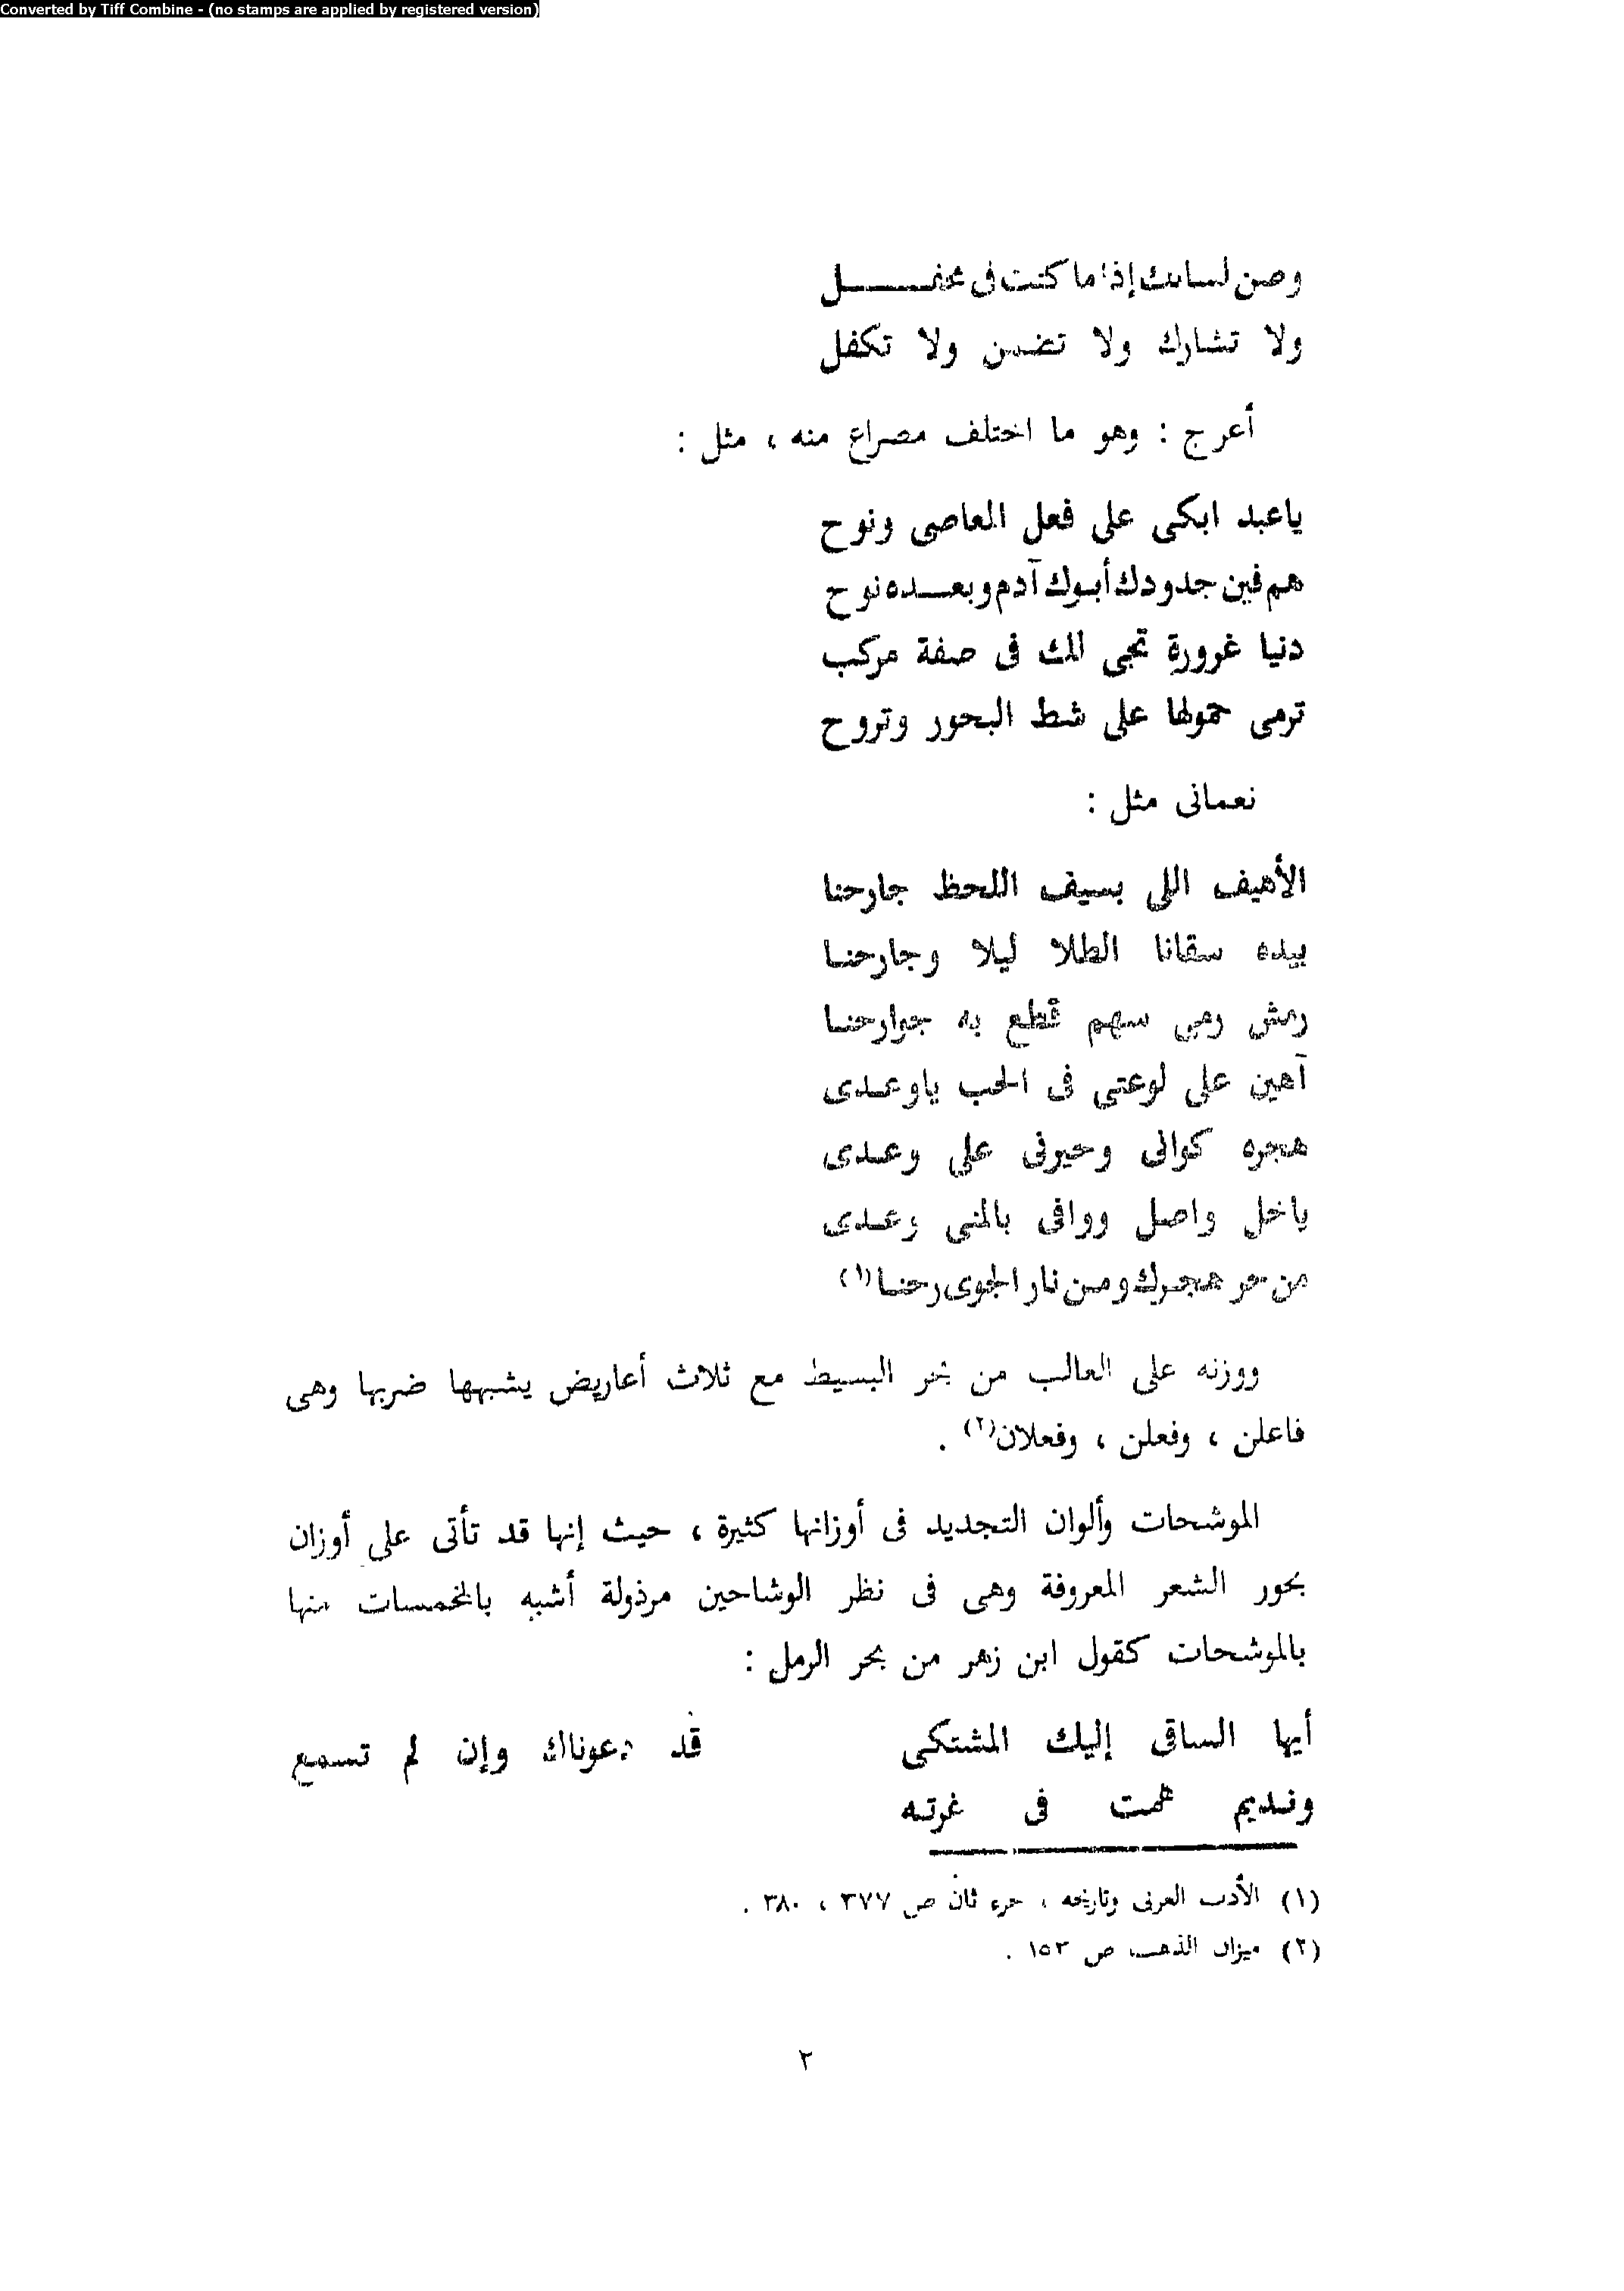 Converted by Tiff Combine - (no stamps are applied by registered version)
وصن لسانك إذا ما كنت فى محفــــل
ولا تشارك ولا تضمن ولا تكفل
أعرج : وهو ما اختلف مصراع منه ، مثل :
ياعبد ابكى على فعل المعاصى ونوح
هم فين جدودك أبوك آدم وبعــده نوح
دنيا غرورة تجى لك فى صفة مركب
ترمى حمولها على شط البحور وتروح
نعمانى مثل :
الأهيف اللى بسيف اللحظ جارحنا
بيده سقانا الطلا ليلا وجارحنـا
رمش رمى سهم قطع به جوارحنـا
آهين على لوعتى فى الحب ياوعـدى
هجره كوانى وحيرنى على وعـدى
ياخل واصل ووافى بالمنى وعـدى
من حر هجرك ومن نار الجوى رحنـا (١)
ووزنه على الغالب من بحر البسيط مع ثلاث أعاريض يشبهها ضربها وهى
فاعلن ، وفعلن ، وفعلان (٢) .
الموشحات وألوان التجديد فى أوزانها كثيرة ، حيث إنها قد تأتى على أوزان
بحور الشعر المعروفة وهى فى نظر الوشاحين مرذولة أشبه بالمخمسات منها
بالموشحات كقول ابن زهر من بحر الرمل :
أيها الساقى إليك المشتكى قد دعوناك وإن لم تسمع
ونـديم همت فى غرتـه
(١) الأدب العربى وتاريخه ، جزء ثان ص ٣٧٧ ، ٣٨٠ .
(٢) ميزان الذهب ص ١٥٣ .
٢